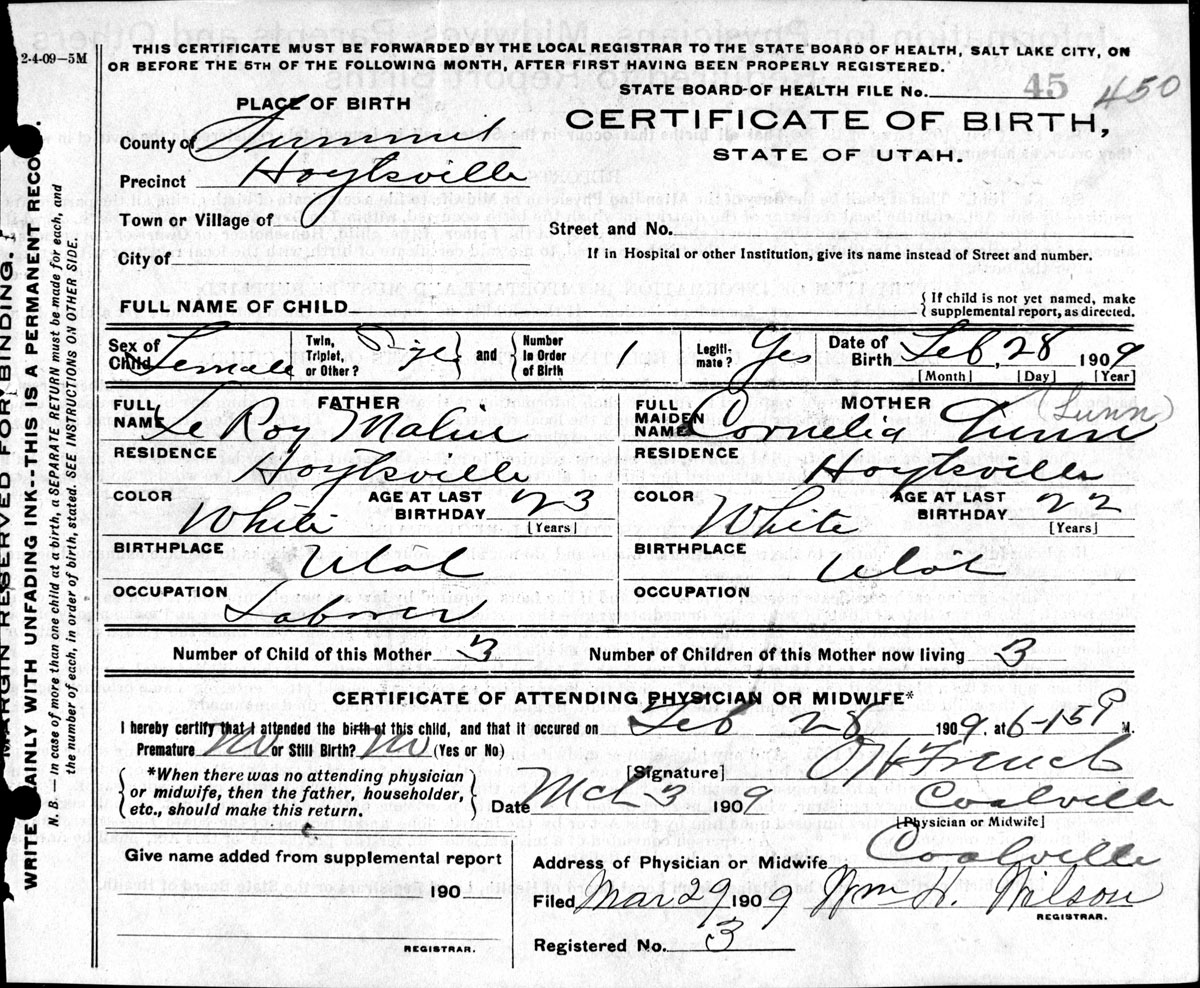 THIS CERTIFICATE MUST BE FORWARDED BY THE LOCAL REGISTRAR TO THE STATE BOARD OF HEALTH, SALT LAKE CITY, ON
2-4-09-5M
OR BEFORE THE 5TH OF THE FOLLOWING MONTH, AFTER FIRST HAVING BEEN PROPERLY REGISTERED.
STATE BOARD OF HEALTH FILE No. 45 450
PLACE OF BIRTH
CERTIFICATE OF BIRTH,
County of Summit
STATE OF UTAH.
Precinct Hoytsville
Town or Village of
Street and No.
City of
If in Hospital or other Institution, give its name instead of Street and number.
FULL NAME OF CHILD
{ If child is not yet named, make
supplemental report, as directed.
Sex of Child Female
Twin, Triplet, or Other?
and { Number in Order of Birth 1
Legiti- mate? Yes
Date of Birth Feb, 28 1909
[Month] [Day] [Year]
FATHER
FULL NAME Le Roy Malin
MOTHER
FULL MAIDEN NAME Cornelia Dunn (Dunn)
RESIDENCE Hoytsville
RESIDENCE Hoytsville
COLOR White
AGE AT LAST BIRTHDAY 23
[Years]
COLOR White
AGE AT LAST BIRTHDAY 22
[Years]
BIRTHPLACE Utah
BIRTHPLACE Utah
OCCUPATION Laborer
OCCUPATION
Number of Child of this Mother 3
Number of Children of this Mother now living 3
CERTIFICATE OF ATTENDING PHYSICIAN OR MIDWIFE*
I hereby certify that I attended the birth of this child, and that it occured on Feb 28 1909, at 6-15 P M.
Premature No or Still Birth? No (Yes or No)
*When there was no attending physician
or midwife, then the father, householder,
etc., should make this return.
[Signature] French
Date Mch 3 1909
Coalville
[Physician or Midwife]
Give name added from supplemental report
190
REGISTRAR.
Address of Physician or Midwife Coalville
Filed Mar 29 1909 Wm H. Wilson
REGISTRAR.
Registered No. 3
MARGIN RESERVED FOR BINDING.
WRITE PLAINLY WITH UNFADING INK--THIS IS A PERMANENT RECORD.
N. B. — In case of more than one child at a birth, a SEPARATE RETURN must be made for each, and
the number of each, in order of birth, stated. SEE INSTRUCTIONS ON OTHER SIDE.